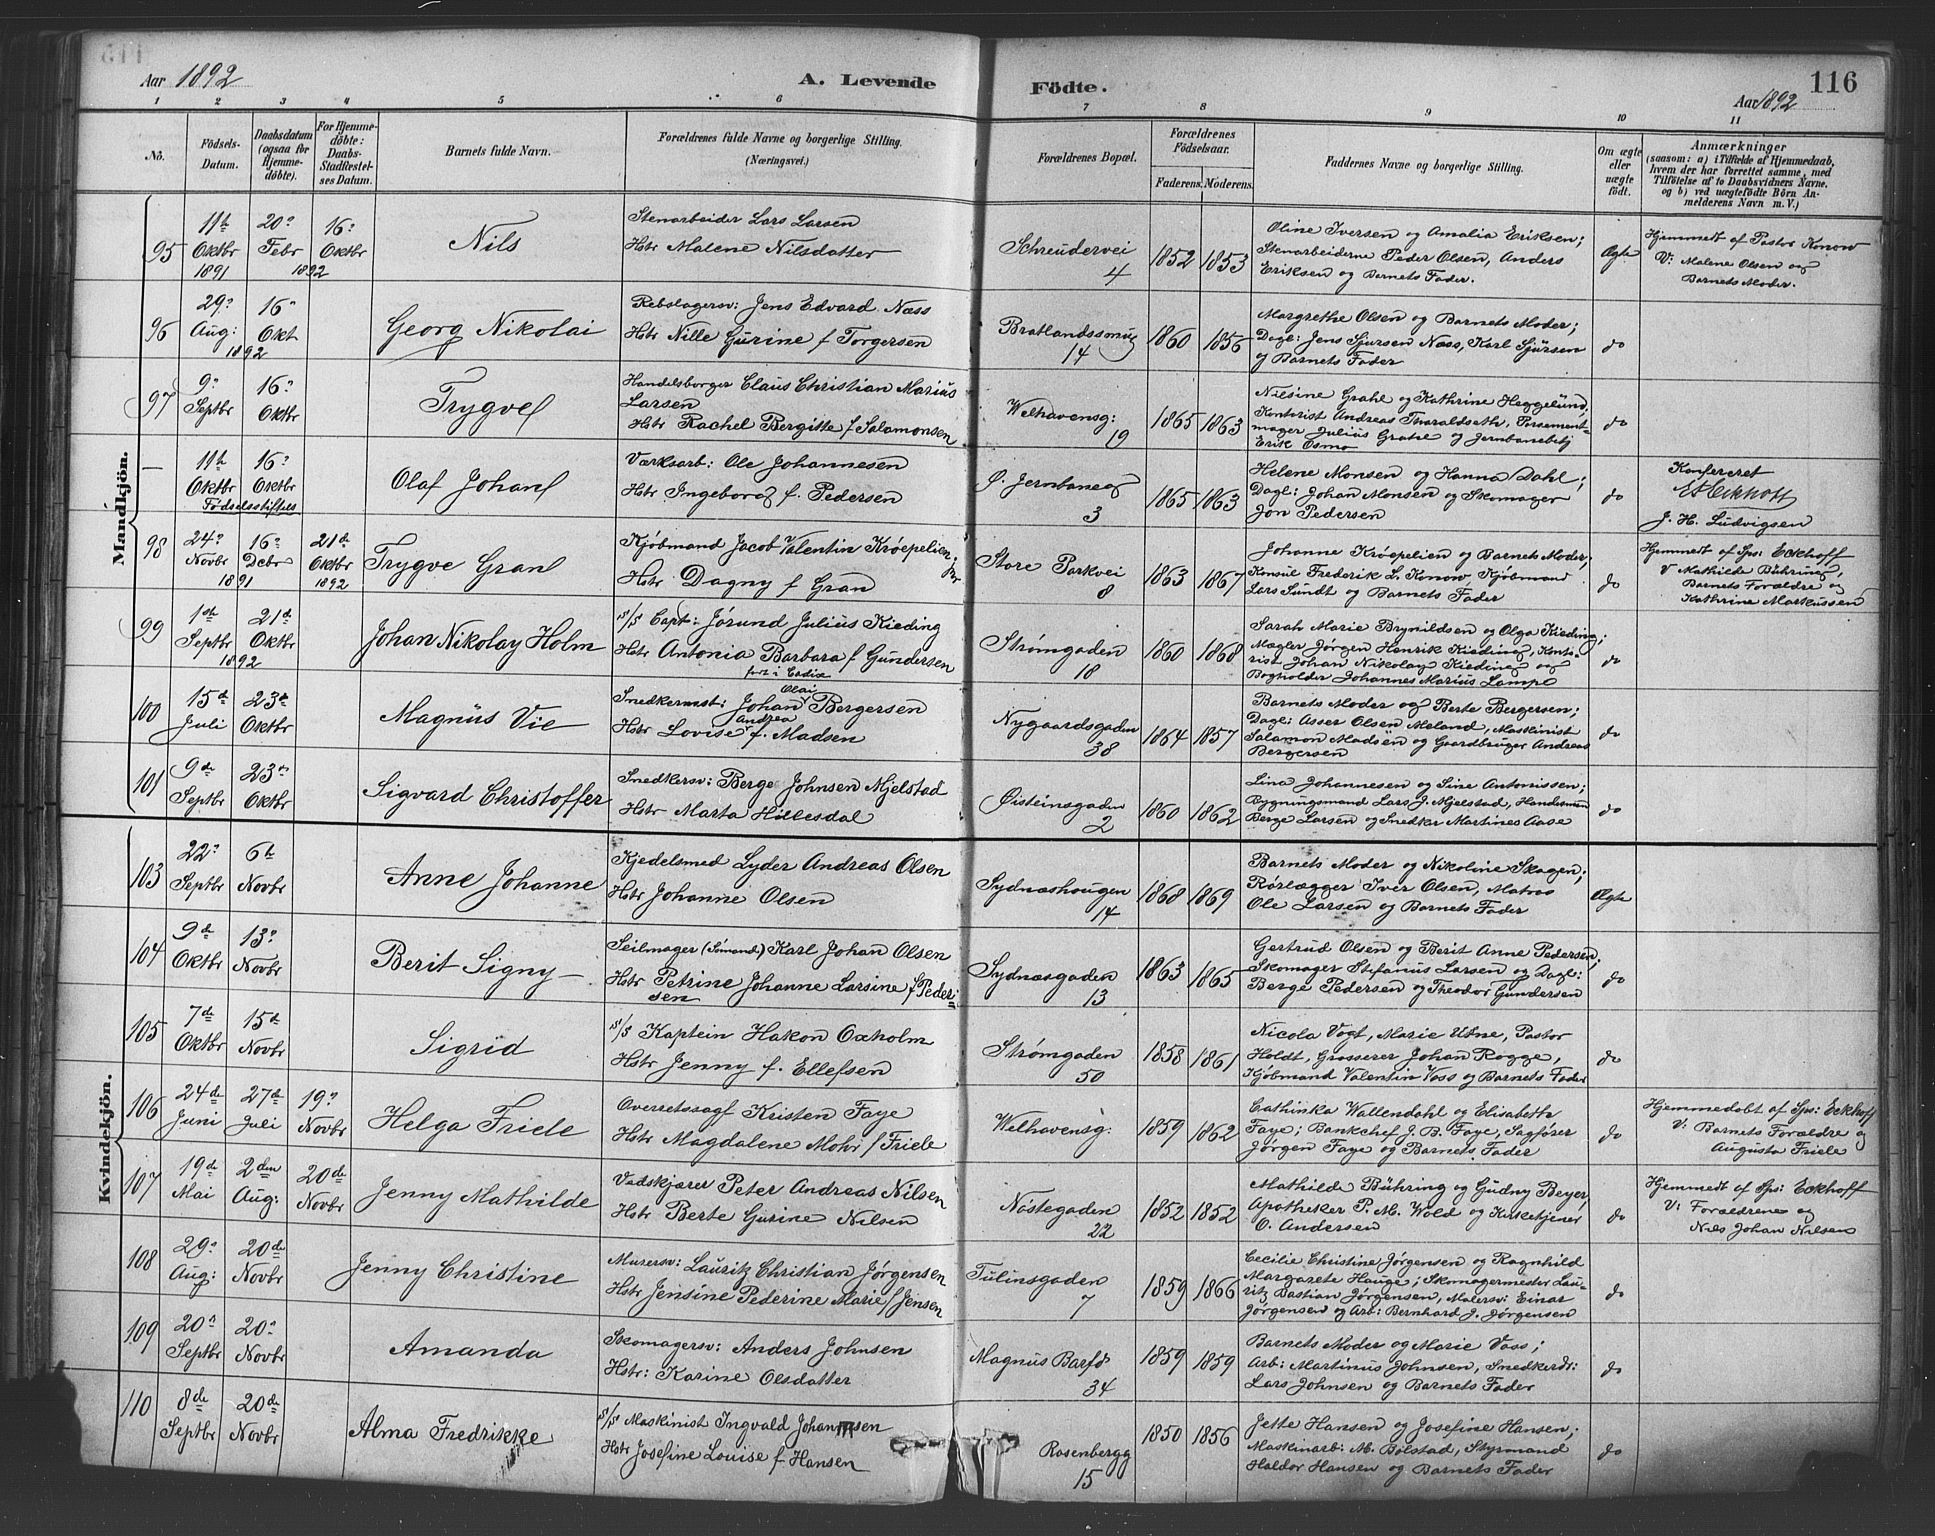 116
Aar 1892
A. Levende
Födte.
Aar 1892
1 2 3 4 5 6 7 8 9 10 11
Nô.
Födsels-Datum.
Daabsdatum (ogsaa for Hjemmedöbte).
For Hjemmedöbte: Daabs-Stadfæstelses Datum.
Barnets fulde Navn.
Forældrenes fulde Navne og borgerlige Stilling. (Næringsvei.)
Forældrenes Bopæl.
Forældrenes Födselsaar.
Faderens. Moderens.
Faddernes Navne og borgerlige Stilling.
Om ægte eller uægte födt.
Anmærkninger
(saasom: a) i Tilfælde af Hjemmedaab, hvem der har forrettet samme, med Tilföielse af to Daabsvidners Navne. og b) ved uægtefödte Börn Anmelderens Navn m. V.)
Mandkjön.
95 11te Oktbr 1891 20de Febr 16de Oktbr 1892
Nils
Stenarbeider Lars Larsen
Hstr Malene Nilsdatter
Schreudervei 4
1852 1853
Oline Iversen og Amalia Eriksen;
Stenarbeiderne Peder Olsen, Anders
Eriksen og Barnets Fader.
Ægte
Hjemmedt af Pastor Konow
V: Malene Olsen og
Barnets Moder.
96 29de Aug: 16de Okt 1892
Georg Nikolai
Rebslagersv: Jens Edvard Næss
Hstr Nille Gurine f Torgersen
Bratlandssmug 14
1860 1856
Margrethe Olsen og Barnets Moder;
Dagl: Jens Sjursen Næss, Karl Sjursen
og Barnets Fader
do
97 9de Septbr 16de Oktbr
Trygve
Handelsborger Claus Christian Marius
Larsen
Hstr Rachel Bergitte f Salamonsen
Welhavensg: 19
1865 1863
Nilsine Grahl og Kathrine Heggelund,
Kontorist Andreas Tharaldseth, Possement-
mager Julius Grahl og Jernbanebetj
Erik Osmo
do
— 11te Oktbr 16de Oktbr
Fødselsstiftels
Olaf Johan
Værksarb: Ole Johannesen
Hstr Ingeborg f. Pedersen
Ø. Jernbaneg 3
1865 1863
Helene Monsen og Hanna Dahl;
Dagl: Johan Monsen og Skomager
Jon Pedersen
do
Konfereret
Eckhoff
J. H. Ludvigsen
98 24de Novbr 1891 16de Debr 21de Oktbr 1892
Trygve Gran
Kjøbmand Jacob Valentin Krøepelien jr
Hstr Dagny f Gran
Store Parkvei 8
1863 1867
Johanne Krøepelien og Barnets Moder;
Konsul Frederik L. Konow, Kjøbmand
Lars Sundt og Barnets Fader
do
Hjemmedt af Sps: Eckhoff
V Mathilde Bühring,
Barnets Forældre og
Kathrine Markussen
99 1ste Septbr 21de Oktbr 1892
Johan Nikolay Holm
S/S Capt: Jørund Julius Kieding
Hstr Antonia Barbara f Gundersen
født i Cadix
Strømgaden 18
1860 1868
Sarah Marie Brynildsen og Olga Kieding;
Mægler Jørgen Henrik Kieding, Konto-
rist Johan Nikolay Kieding og
Bogholder Johannes Marius Lampe
do
100 15de Juli 23de Oktbr
Magnus Vie
Snedkermst: Johan Olai Bergersen
Hstr Lovise Andrea f. Madsen
Nygaardsgaden 38
1864 1857
Barnets Moder og Berte Bergersen;
Dagl: Asser Olsen Meland, Maskinist
Salamon Madsen og Gaardbruger Andreas
Bergersen
do
101 9de Septbr 23de Oktbr
Sigvard Christoffer
Snedkersv: Berge Johnsen Mjelstad
Hstr Marta Hillesdal
Øisteinsgaden 2
1860 1862
Lina Johannesen og Sine Antonissen;
Bygningsmand Lars J. Mjelstad, Handesmnn
Berge Larsen og Snedker Martines Aase
do
Kvindekjön.
103 22de Septbr 6te Novbr
Anne Johanne
Kjedelsmed Lyder Andreas Olsen
Hstr Johanne Olsen
Sydnæshougen 14
1868 1869
Barnets Moder og Nikoline Skagen;
Rørlægger Iver Olsen, Matros
Ole Larsen og Barnets Fader
Ægte
104 9de Oktbr 13de Novbr
Berit Signy
Seilmager (Sømand) Karl Johan Olsen
Hstr Petrine Johanne Larsine f Peder-
sen
Sydnæsgaden 13
1863 1865
Gertrud Olsen og Berit Anne Pedersen;
Skomager Stefanus Larsen og Dagl:
Berge Pedersen og Theodor Gundersen
do
105 7de Oktbr 15de Novbr
Sigrid
S/S Kaptein Hakon Oxholm
Hstr Jenny f. Ellefsen
Strømgaden 50
1858 1861
Nicola Vogt, Marie Utne, Pastor
Holdt, Grosserer Johan Rogge,
Kjøbmand Valentin Voss og Barnets Fader
do
106 24de Juni 27de Juli 19de Novbr
Helga Friele
Overretssagf Kristen Faye
Hstr Magdalene Mohr f Friele
Welhavensg:
1859 1862
Cathinka Wallendahl og Elisabeth
Faye; Bankchef J. B. Faye, Sagfører
Jørgen Faye og Barnets Fader
do
Hjemmedøbt af Sps: Eckhoff
V: Barnets Forældre og
Augusta Friele
107 19de Mai 2den Aug: 20de Novbr
Jenny Mathilde
Vadskjærer Peter Andreas Nilsen
Hstr Berte Gurine Nilsen
Nøstegaden 22
1852 1852
Mathilde Bühring og Gudny Beyer,
Apotheker P. M. Wold og Kirketjener
O. Andersen
do
Hjemmedt af Sps: Eckhoff
V: Forældrene og
Nils Johan Nilsen
108 29de Aug: 20de Novbr
Jenny Christine
Murersv: Lauritz Christian Jørgensen
Hstr Jensine Pederine Marie f Jensen
Tulinsgaden 7
1859 1866
Cecilie Christine Jørgensen og Ragnhild
Margarete Hauge; Skomagermester Lau-
ritz Bastian Jørgensen, Malersv: Einar
Jørgensen og Arb: Bernhard J. Jørgensen
do
109 20de Septbr 20de Novbr
Amanda
Skomagersv: Anders Johnsen
Hstr: Karine Olsdatter
Magnus Barfd 34
1859 1859
Barnets Moder og Marie Voss;
Arb: Martinus Johnsen, Snedkerdr:
Lars Johnsen og Barnets Fader
do
110 8de Septbr 20de Novbr
Alma Fredrikke
S/S Maskinist Ingvald Johannesen
Hstr Josefine Louise f Hansen
Rosenbergg 15
1850 1856
Jette Hansen og Josefine Hansen;
Maskinarb: M. Bolstad, Styrmand
Haldor Hansen og Barnets Fader
do